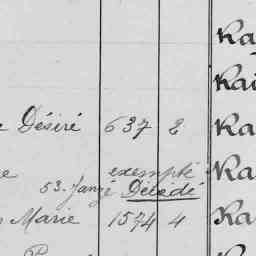 Ra
Rai
e Désiré 637 2 Ra
e exempté Ra
53. Janzé Décédé
s Marie 1574 4 Ra